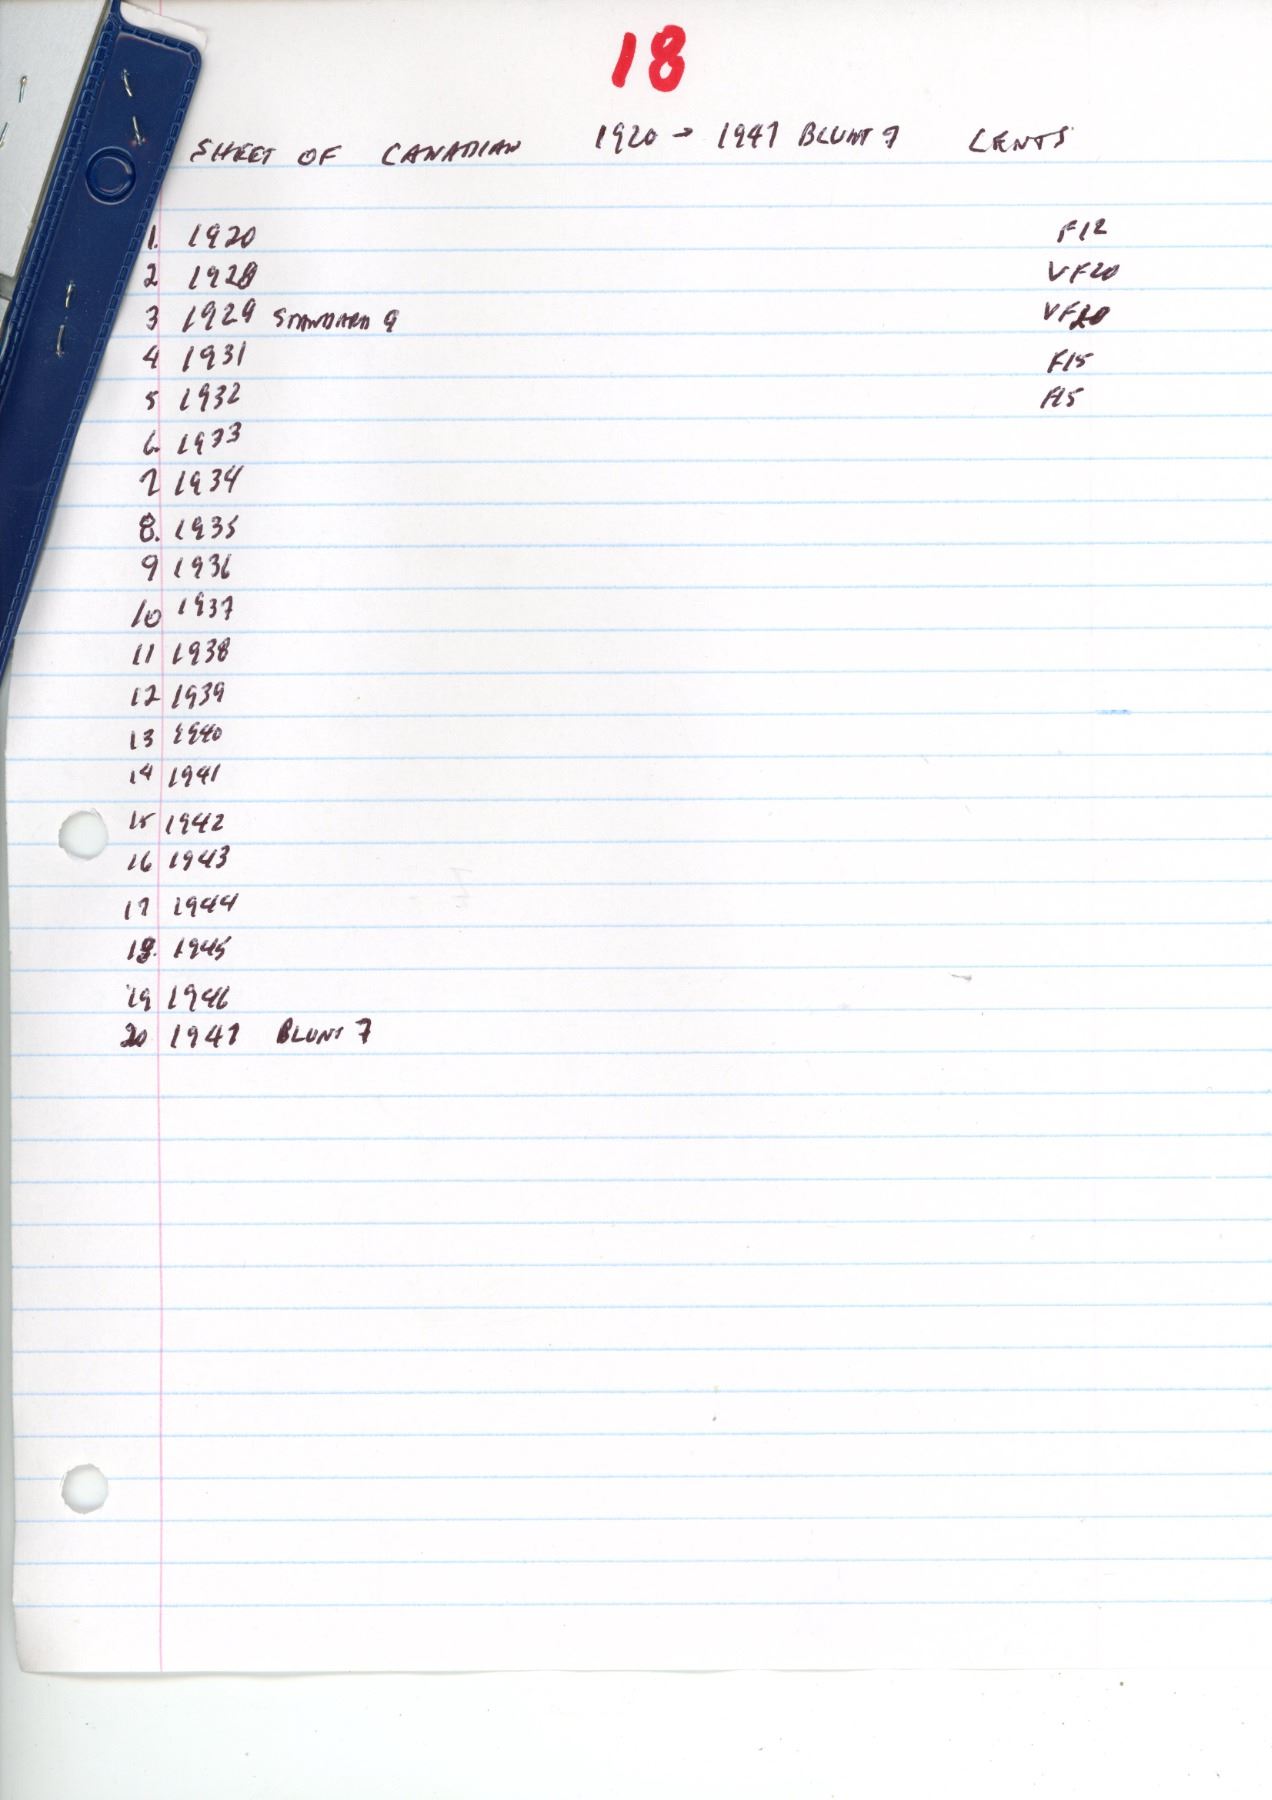 18
SHEET OF CANADIAN 1920 → 1947 BLUNT 7 CENTS
1. 1920 F12
2 1928 VF20
3 1929 STANDARD 9 VF20
4 1931 F15
5 1932 F15
6. 1933
7 1934
8. 1935
9 1936
10 1937
11 1938
12 1939
13 1940
14 1941
15 1942
16 1943
17 1944
18. 1945
19 1946
20 1947 BLUNT 7